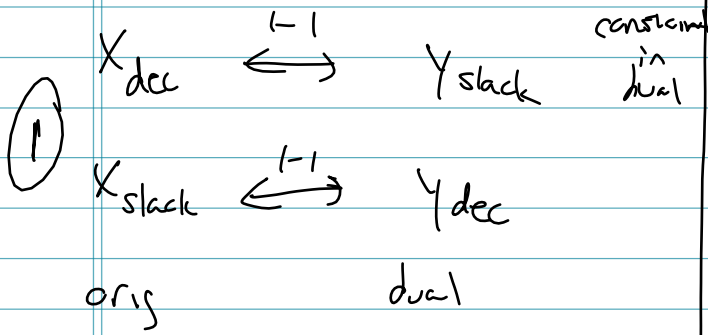 X dec <-> 1-1 Y slack
constraint in dual
1
X slack <-> 1-1 Y dec
orig dual